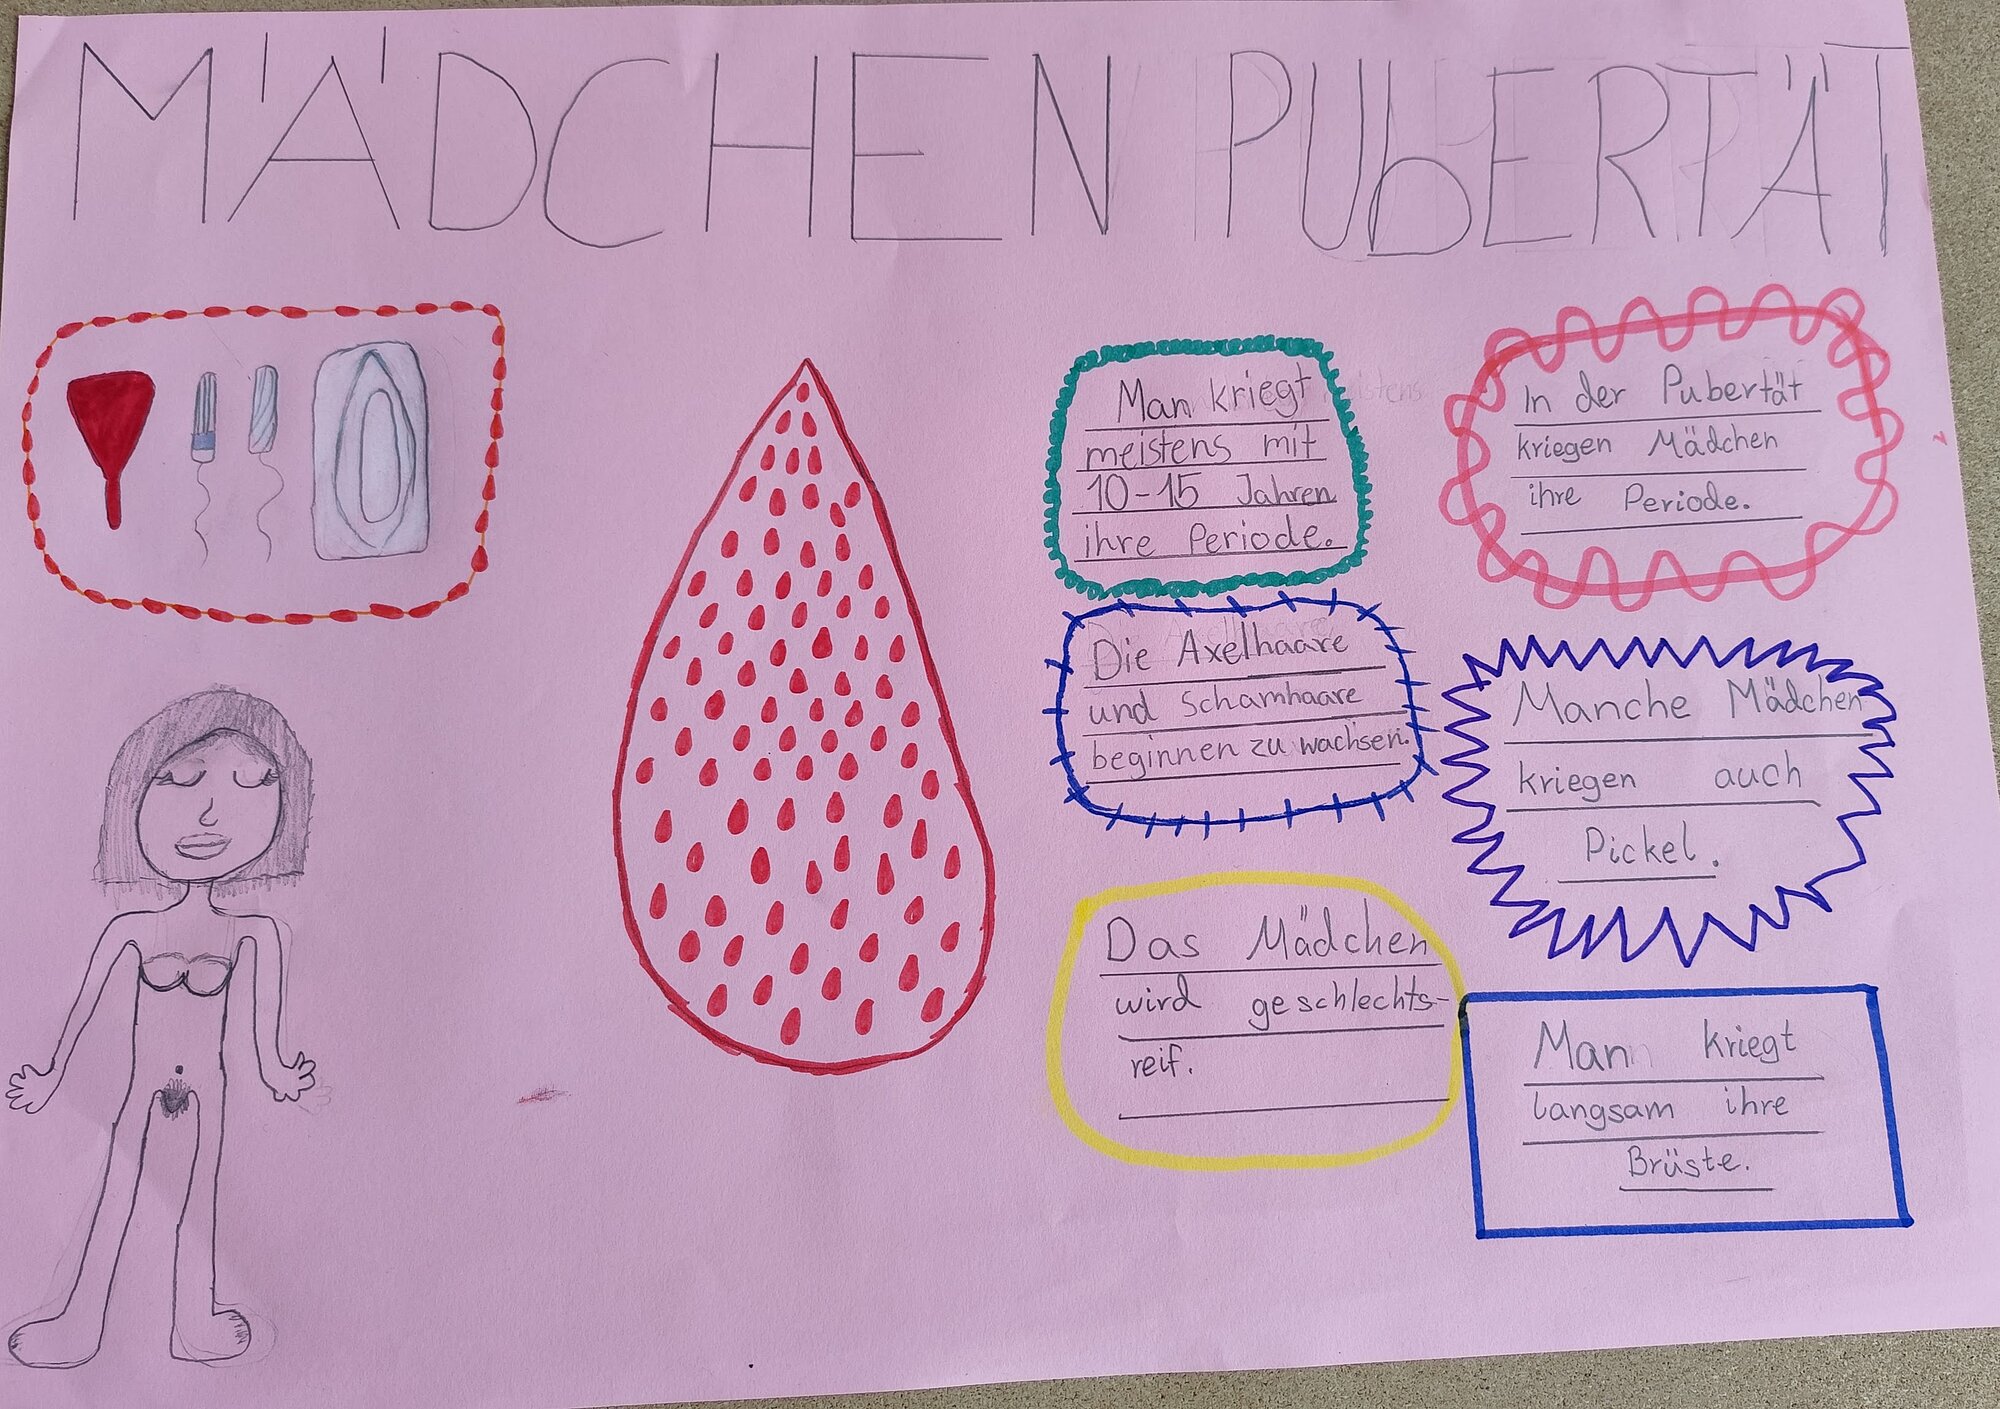 MÄDCHEN PUbERTÄT
Man kriegt
meistens mit
10-15 Jahren
ihre Periode.
In der Pubertät
kriegen Mädchen
ihre Periode.
Die Axelhaare
und Schamhaare
beginnen zu wachsen.
Manche Mädchen
kriegen auch
Pickel.
Das Mädchen
wird geschlechts-
reif.
Man kriegt
langsam ihre
Brüste.